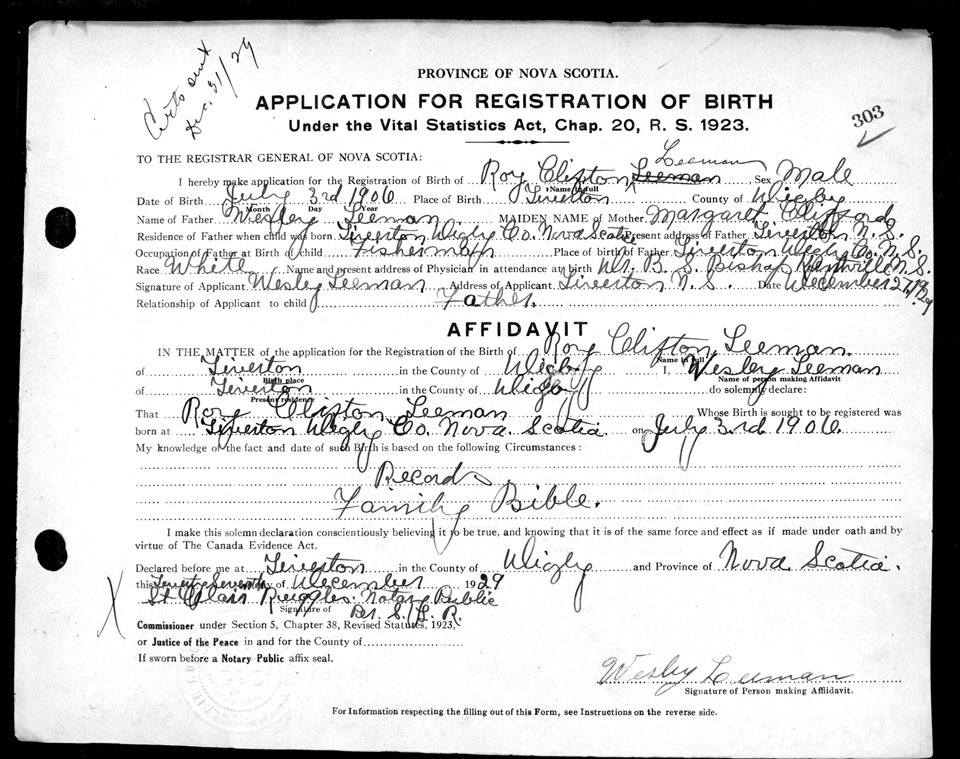 Certs sent
Dec. 31/29
PROVINCE OF NOVA SCOTIA.
APPLICATION FOR REGISTRATION OF BIRTH
303
Under the Vital Statistics Act, Chap. 20, R. S. 1923.
TO THE REGISTRAR GENERAL OF NOVA SCOTIA:
Leeman
I hereby make application for the Registration of Birth of Roy Clifton Leeman Sex Male
Name in full
Date of Birth July 3rd 1906 Place of Birth Tiverton County of Digby
Month Day Year
Name of Father Wesley Leeman MAIDEN NAME of Mother Margaret Clifford
Residence of Father when child was born Tiverton Digby Co. Nova Scotia Present address of Father Tiverton N. S.
Occupation of Father at Birth of child Fisherman Place of birth of Father Tiverton Digby Co. N. S.
Race White Name and present address of Physician in attendance at birth Dr. B. S. Bishop Kentville N. S.
Signature of Applicant Wesley Leeman Address of Applicant Tiverton N. S. Date December 27, 1929
Relationship of Applicant to child Father.
AFFIDAVIT
IN THE MATTER of the application for the Registration of the Birth of Roy Clifton Leeman.
Name in full
of Tiverton in the County of Digby I, Wesley Leeman
Birth place Name of person making Affidavit
of Tiverton in the County of Digby do solemnly declare:
Present residence
That Roy Clifton Leeman Whose Birth is sought to be registered was
born at Tiverton Digby Co. Nova Scotia on July 3rd 1906.
My knowledge of the fact and date of such Birth is based on the following Circumstances:
Records
Family Bible.
I make this solemn declaration conscientiously believing it to be true, and knowing that it is of the same force and effect as if made under oath and by
virtue of The Canada Evidence Act.
Declared before me at Tiverton in the County of Digby and Province of Nova Scotia.
this Twenty Seventh day of December 1929
St Clair Ruggles. Notary Public
Signature of Per. S. L. R.
X
Commissioner under Section 5, Chapter 38, Revised Statutes, 1923,
or Justice of the Peace in and for the County of
If sworn before a Notary Public affix seal.
Wesley Leeman
Signature of Person making Affidavit.
For Information respecting the filling out of this Form, see Instructions on the reverse side.